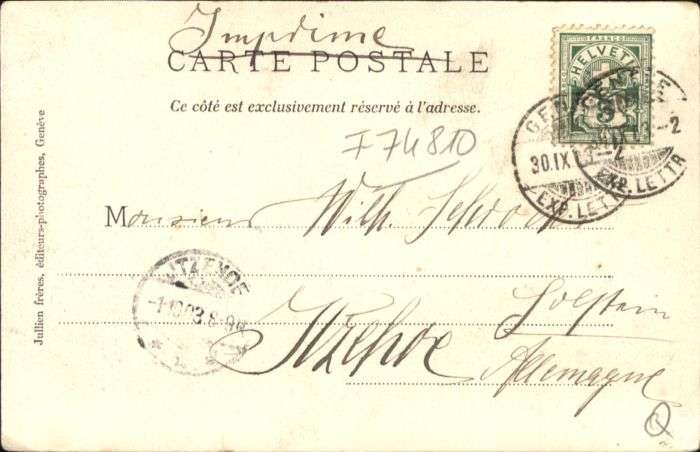 Imprimé
CARTE POSTALE
Ce côté est exclusivement réservé à l'adresse.
FRANCO
HELVETIA
GENÈVE
30.IX
EXP. LETTR
EXP. LETT
I 74810
Monsieur Wilh. Schröder
ITZEHOE
-1.10.03. 8-9
Itzehoe
Holstein
Allemagne
Jullien frères, éditeurs-photographes, Genève